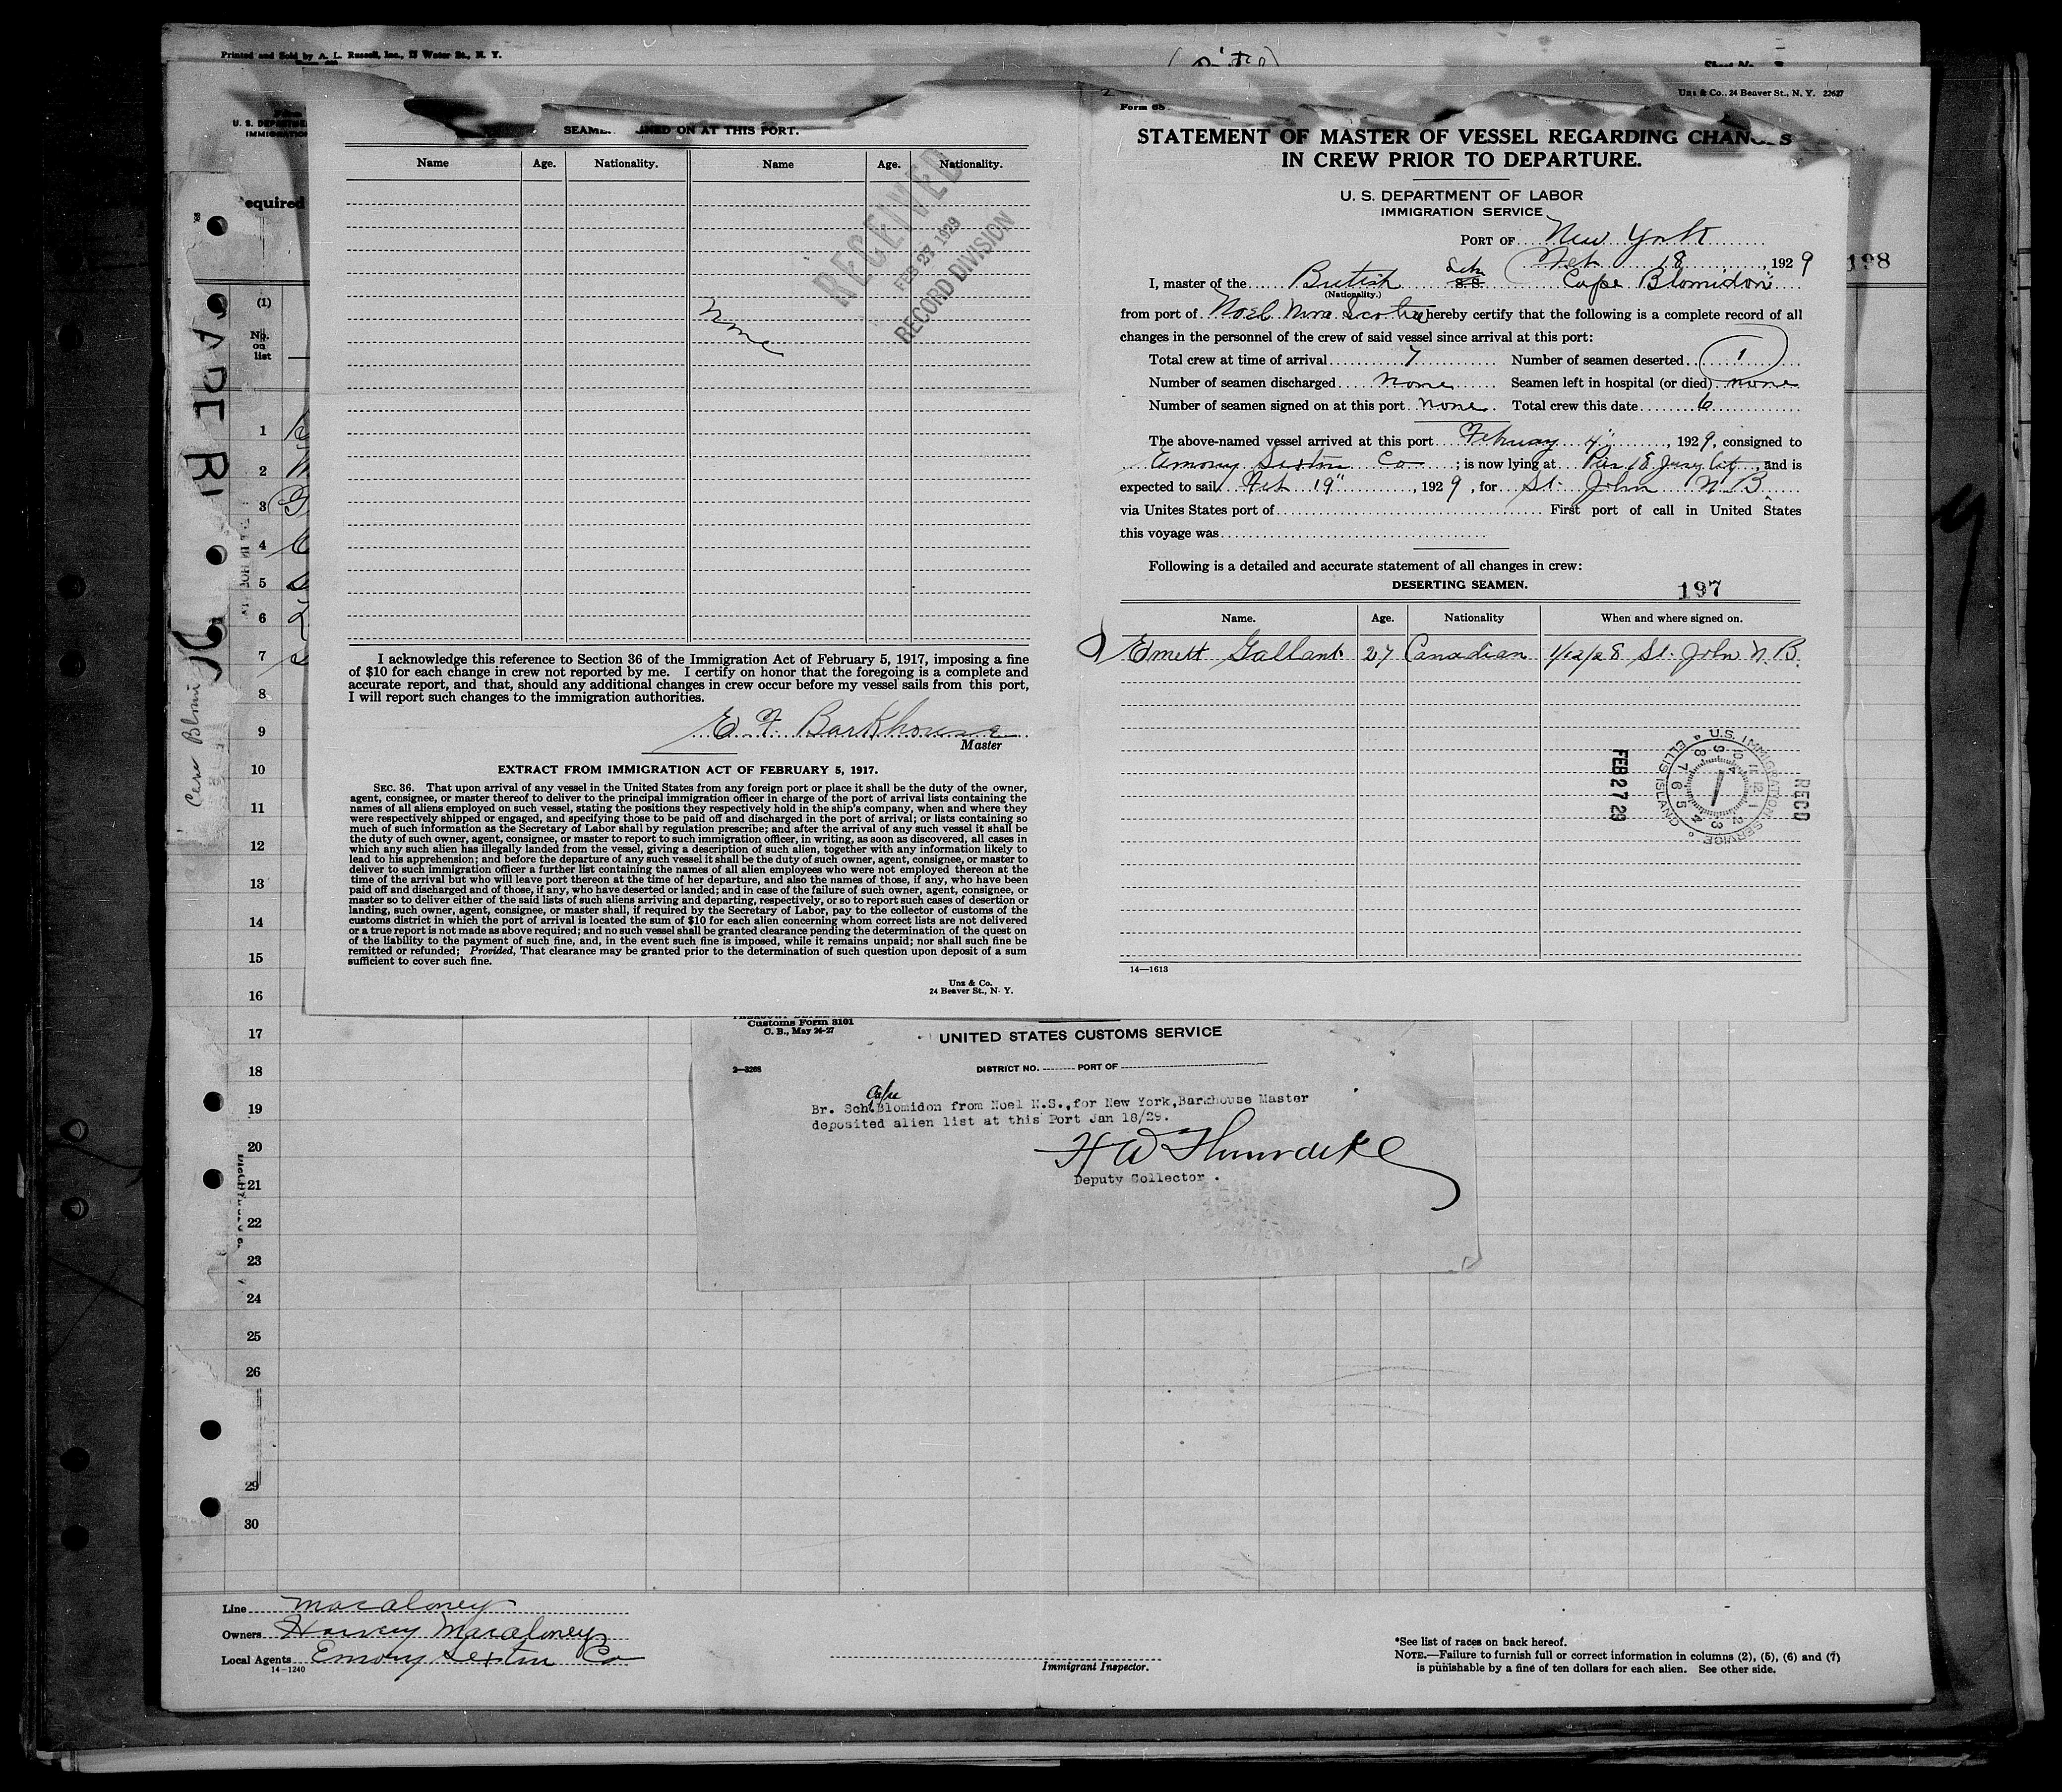 Printed and Sold by A. L. Russell, Inc., 15 Water St., N. Y.
U. S.
IMMIGRATION
equired
(1)
No.
on
list
1
2
3
4
5
6
7
8
9
10
11
12
13
14
15
16
17
18
19
20
21
22
23
24
25
26
29
30
SEAM... NED ON AT THIS PORT.
Name Age. Nationality. Name Age. Nationality.
RECEIVED
FEB 27 1929
RECORD DIVISION
None
I acknowledge this reference to Section 36 of the Immigration Act of February 5, 1917, imposing a fine
of $10 for each change in crew not reported by me. I certify on honor that the foregoing is a complete and
accurate report, and that, should any additional changes in crew occur before my vessel sails from this port,
I will report such changes to the immigration authorities.
E F Barkhouse
Master
EXTRACT FROM IMMIGRATION ACT OF FEBRUARY 5, 1917.
SEC. 36. That upon arrival of any vessel in the United States from any foreign port or place it shall be the duty of the owner,
agent, consignee, or master thereof to deliver to the principal immigration officer in charge of the port of arrival lists containing the
names of all aliens employed on such vessel, stating the positions they respectively hold in the ship's company, when and where they
were respectively shipped or engaged, and specifying those to be paid off and discharged in the port of arrival; or lists containing so
much of such information as the Secretary of Labor shall by regulation prescribe; and after the arrival of any such vessel it shall be
the duty of such owner, agent, consignee, or master to report to such immigration officer, in writing, as soon as discovered, all cases in
which any such alien has illegally landed from the vessel, giving a description of such alien, together with any information likely to
lead to his apprehension; and before the departure of any such vessel it shall be the duty of such owner, agent, consignee, or master to
deliver to such immigration officer a further list containing the names of all alien employees who were not employed thereon at the
time of the arrival but who will leave port thereon at the time of her departure, and also the names of those, if any, who have been
paid off and discharged and of those, if any, who have deserted or landed; and in case of the failure of such owner, agent, consignee, or
master so to deliver either of the said lists of such aliens arriving and departing, respectively, or so to report such cases of desertion or
landing, such owner, agent, consignee, or master shall, if required by the Secretary of Labor, pay to the collector of customs of the
customs district in which the port of arrival is located the sum of $10 for each alien concerning whom correct lists are not delivered
or a true report is not made as above required; and no such vessel shall be granted clearance pending the determination of the quest on
of the liability to the payment of such fine, and, in the event such fine is imposed, while it remains unpaid; nor shall such fine be
remitted or refunded; Provided, That clearance may be granted prior to the determination of such question upon deposit of a sum
sufficient to cover such fine.
Unz & Co.
24 Beaver St., N. Y.
Unz & Co., 24 Beaver St., N. Y. 22627
Form 68
STATEMENT OF MASTER OF VESSEL REGARDING CHANGES
IN CREW PRIOR TO DEPARTURE.
U. S. DEPARTMENT OF LABOR
IMMIGRATION SERVICE
PORT OF New York
Feb 18, 1929
198
I, master of the British S.S. Sch Cape Blomidon
(Nationality.)
from port of Noel Nova Scotia hereby certify that the following is a complete record of all
changes in the personnel of the crew of said vessel since arrival at this port:
Total crew at time of arrival 7 Number of seamen deserted 1
Number of seamen discharged none Seamen left in hospital (or died) none
Number of seamen signed on at this port none. Total crew this date 6
The above-named vessel arrived at this port Febuary 4", 1929, consigned to
Emory Sexton Co; is now lying at Pier 18 Jersey City, and is
expected to sail Feb 19", 1929, for St. John N. B.
via Unites States port of First port of call in United States
this voyage was
Following is a detailed and accurate statement of all changes in crew:
DESERTING SEAMEN.
197
Name. Age. Nationality When and where signed on.
Emett Gallant 27 Canadian 1/12/28 St. John N. B.
FEB 27 29
U.S. IMMIGRATION SERVICE ELLIS ISLAND
REC'D
14—1613
Customs Form 3101
C. B., May 24-27
UNITED STATES CUSTOMS SERVICE
2—3268
DISTRICT NO. PORT OF
Cape
Br. Sch. Blomidon from Noel N.S., for New York, Barkhouse Master
deposited alien list at this Port Jan 18/29.
Deputy Collector.
Line Macaloney
Owners Harvey Macaloney
Local Agents Emory Sexton Co
14-1240
Immigrant Inspector.
*See list of races on back hereof.
NOTE.—Failure to furnish full or correct information in columns (2), (5), (6) and (7)
is punishable by a fine of ten dollars for each alien. See other side.